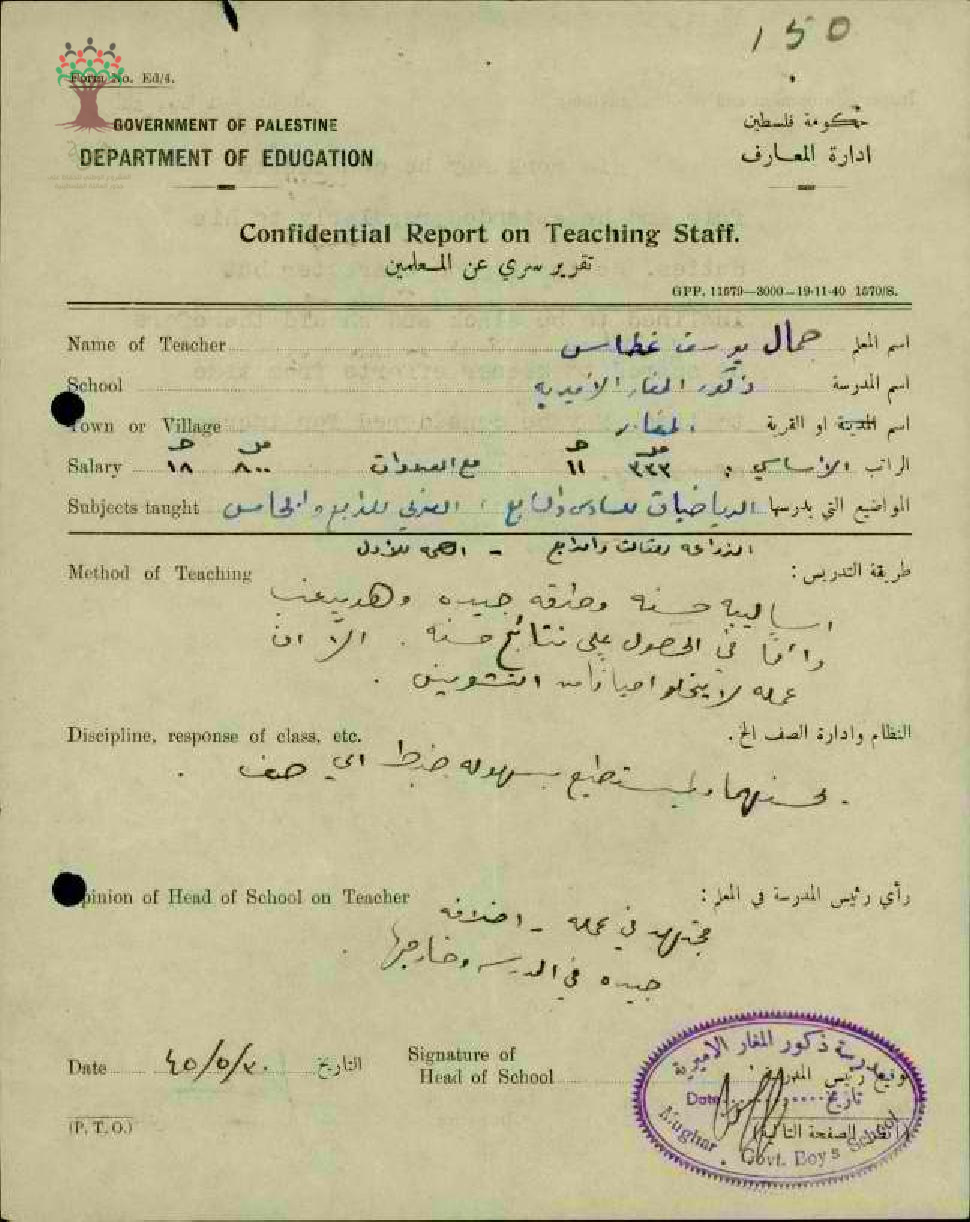 150
Form No. Ed/4.
GOVERNMENT OF PALESTINE
حكومة فلسطين
DEPARTMENT OF EDUCATION
ادارة المعارف
Confidential Report on Teaching Staff.
تقرير سري عن المعلمين
GPP. 11679—3000—19-11-40 1570/S.
Name of Teacher جمال يوسف غطاس اسم المعلم
School ذكور المغار الاميرية اسم المدرسة
Town or Village المغار اسم المدينة او القرية
Salary ١٨ ٨٠٠ مع العلاوات ١١ ٣٣٣ الراتب الأساسي :
Subjects taught الرياضيات للسادس والسابع ، العربي للرابع والخامس المواضيع التي يدرسها
الزراعة للثالث والرابع - الصحة للأول
Method of Teaching طريقة التدريس :
اساليبه حسنه وطرقه جيده وهو يرغب
دائما في الحصول على نتائج حسنه . الا ان
عمله لا يخلو احيانا من التشويش .
Discipline, response of class, etc. النظام وادارة الصف الخ .
يحسنهما ويستطيع بسهوله ضبط اي صف .
Opinion of Head of School on Teacher رأي رئيس المدرسة في المعلم :
مجتهد في عمله - اخلاقه
جيده في المدرسه وخارجها .
Date ٤٥/٥/٢٠ التاريخ
Signature of
Head of School توقيع رئيس المدرسة
مدرسة ذكور المغار الاميرية
Date تاريخ
Mughar Govt. Boys School
(P. T. O.) (انظر الصفحة التالية)